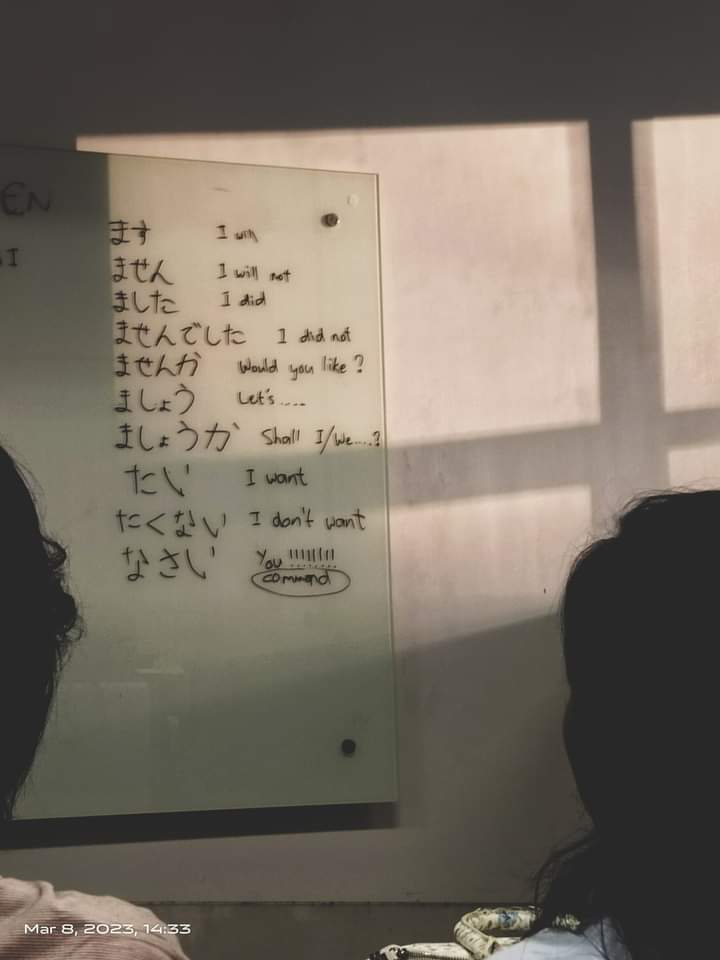 EN
ます I will
I
ません I will not
ました I did
ませんでした I did not
ませんか Would you like?
ましょう Let's.....
ましょうか Shall I/We....?
たい I want
たくない I don't want
なさい You !!!!!!!!
command
Mar 8, 2023, 14:33